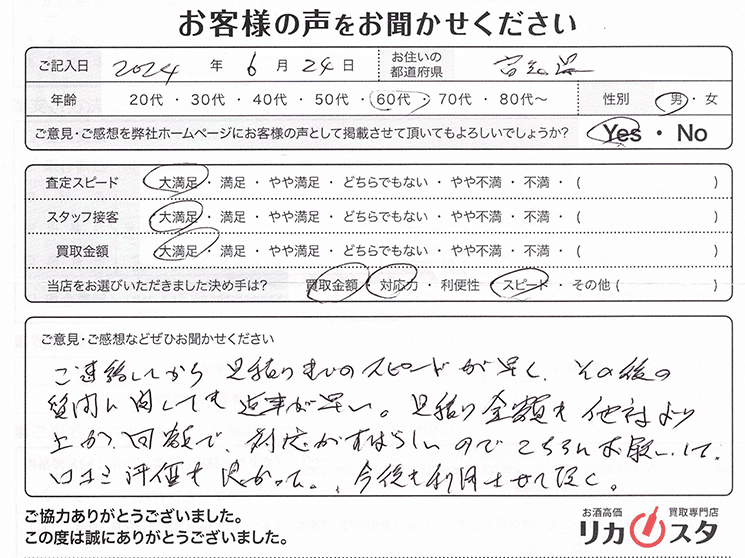 お客様の声をお聞かせください
ご記入日 2024 年 6 月 24 日 お住いの都道府県
年齢 20代 ・ 30代 ・ 40代 ・ 50代 ・ 60代 ・ 70代 ・ 80代～ 性別 男 ・ 女
ご意見・ご感想を弊社ホームページにお客様の声として掲載させて頂いてもよろしいでしょうか? Yes ・ No
査定スピード 大満足 ・ 満足 ・ やや満足 ・ どちらでもない ・ やや不満 ・ 不満 ・ ( )
スタッフ接客 大満足 ・ 満足 ・ やや満足 ・ どちらでもない ・ やや不満 ・ 不満 ・ ( )
買取金額 大満足 ・ 満足 ・ やや満足 ・ どちらでもない ・ やや不満 ・ 不満 ・ ( )
当店をお選びいただきました決め手は? 買取金額 ・ 対応力 ・ 利便性 ・ スピード ・ その他 ( )
ご意見・ご感想などぜひお聞かせください
ご連絡してから 見積りまでのスピードが早く、その後の
質問に関しても 返事が早い。見積り金額も 他社より
上か、同額で、対応がすばらしいので こちらにお願いして、
口コミ評価も 良かった。今後も利用させて頂く。
ご協力ありがとうございました。
この度は誠にありがとうございました。
お酒高価 買取専門店
リカスタ